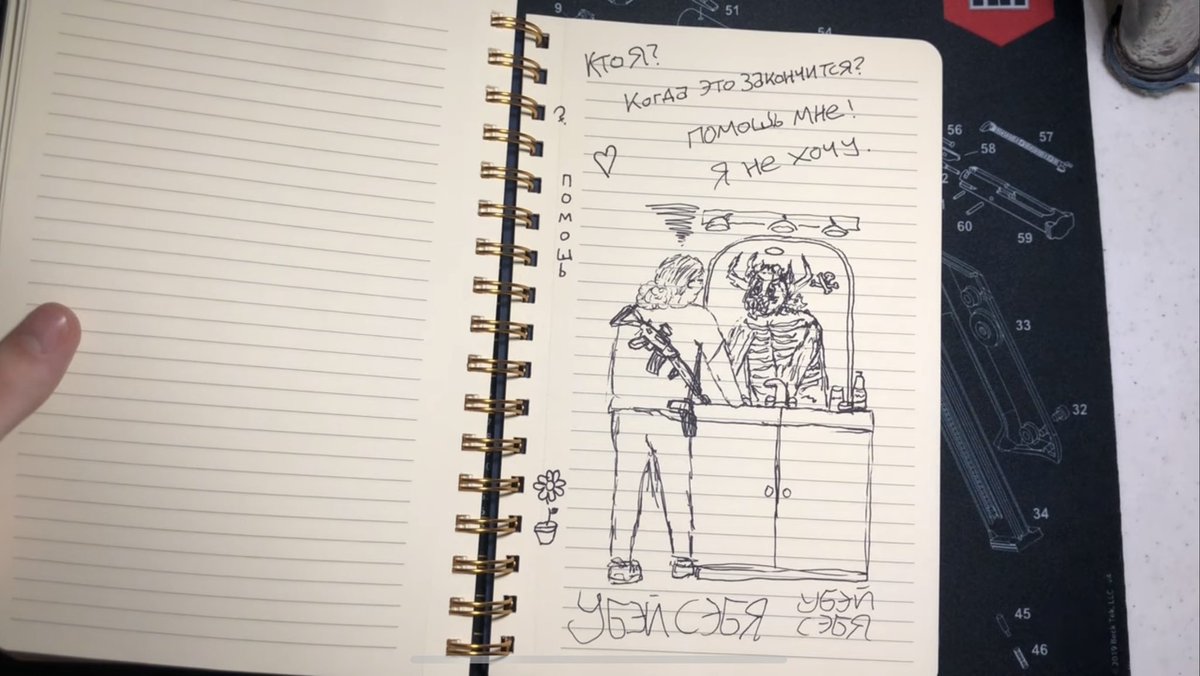 9
51
54
Кто я?
Когда это закончится?
помошь мне!
Я не хочу.
?
ПОМОШЬ
56
57
58
60
59
33
32
34
УБЭЙ СЭБЯ
УБЭЙ
СЭБЯ
45
46
©2019 Beck Tek, LLC v4